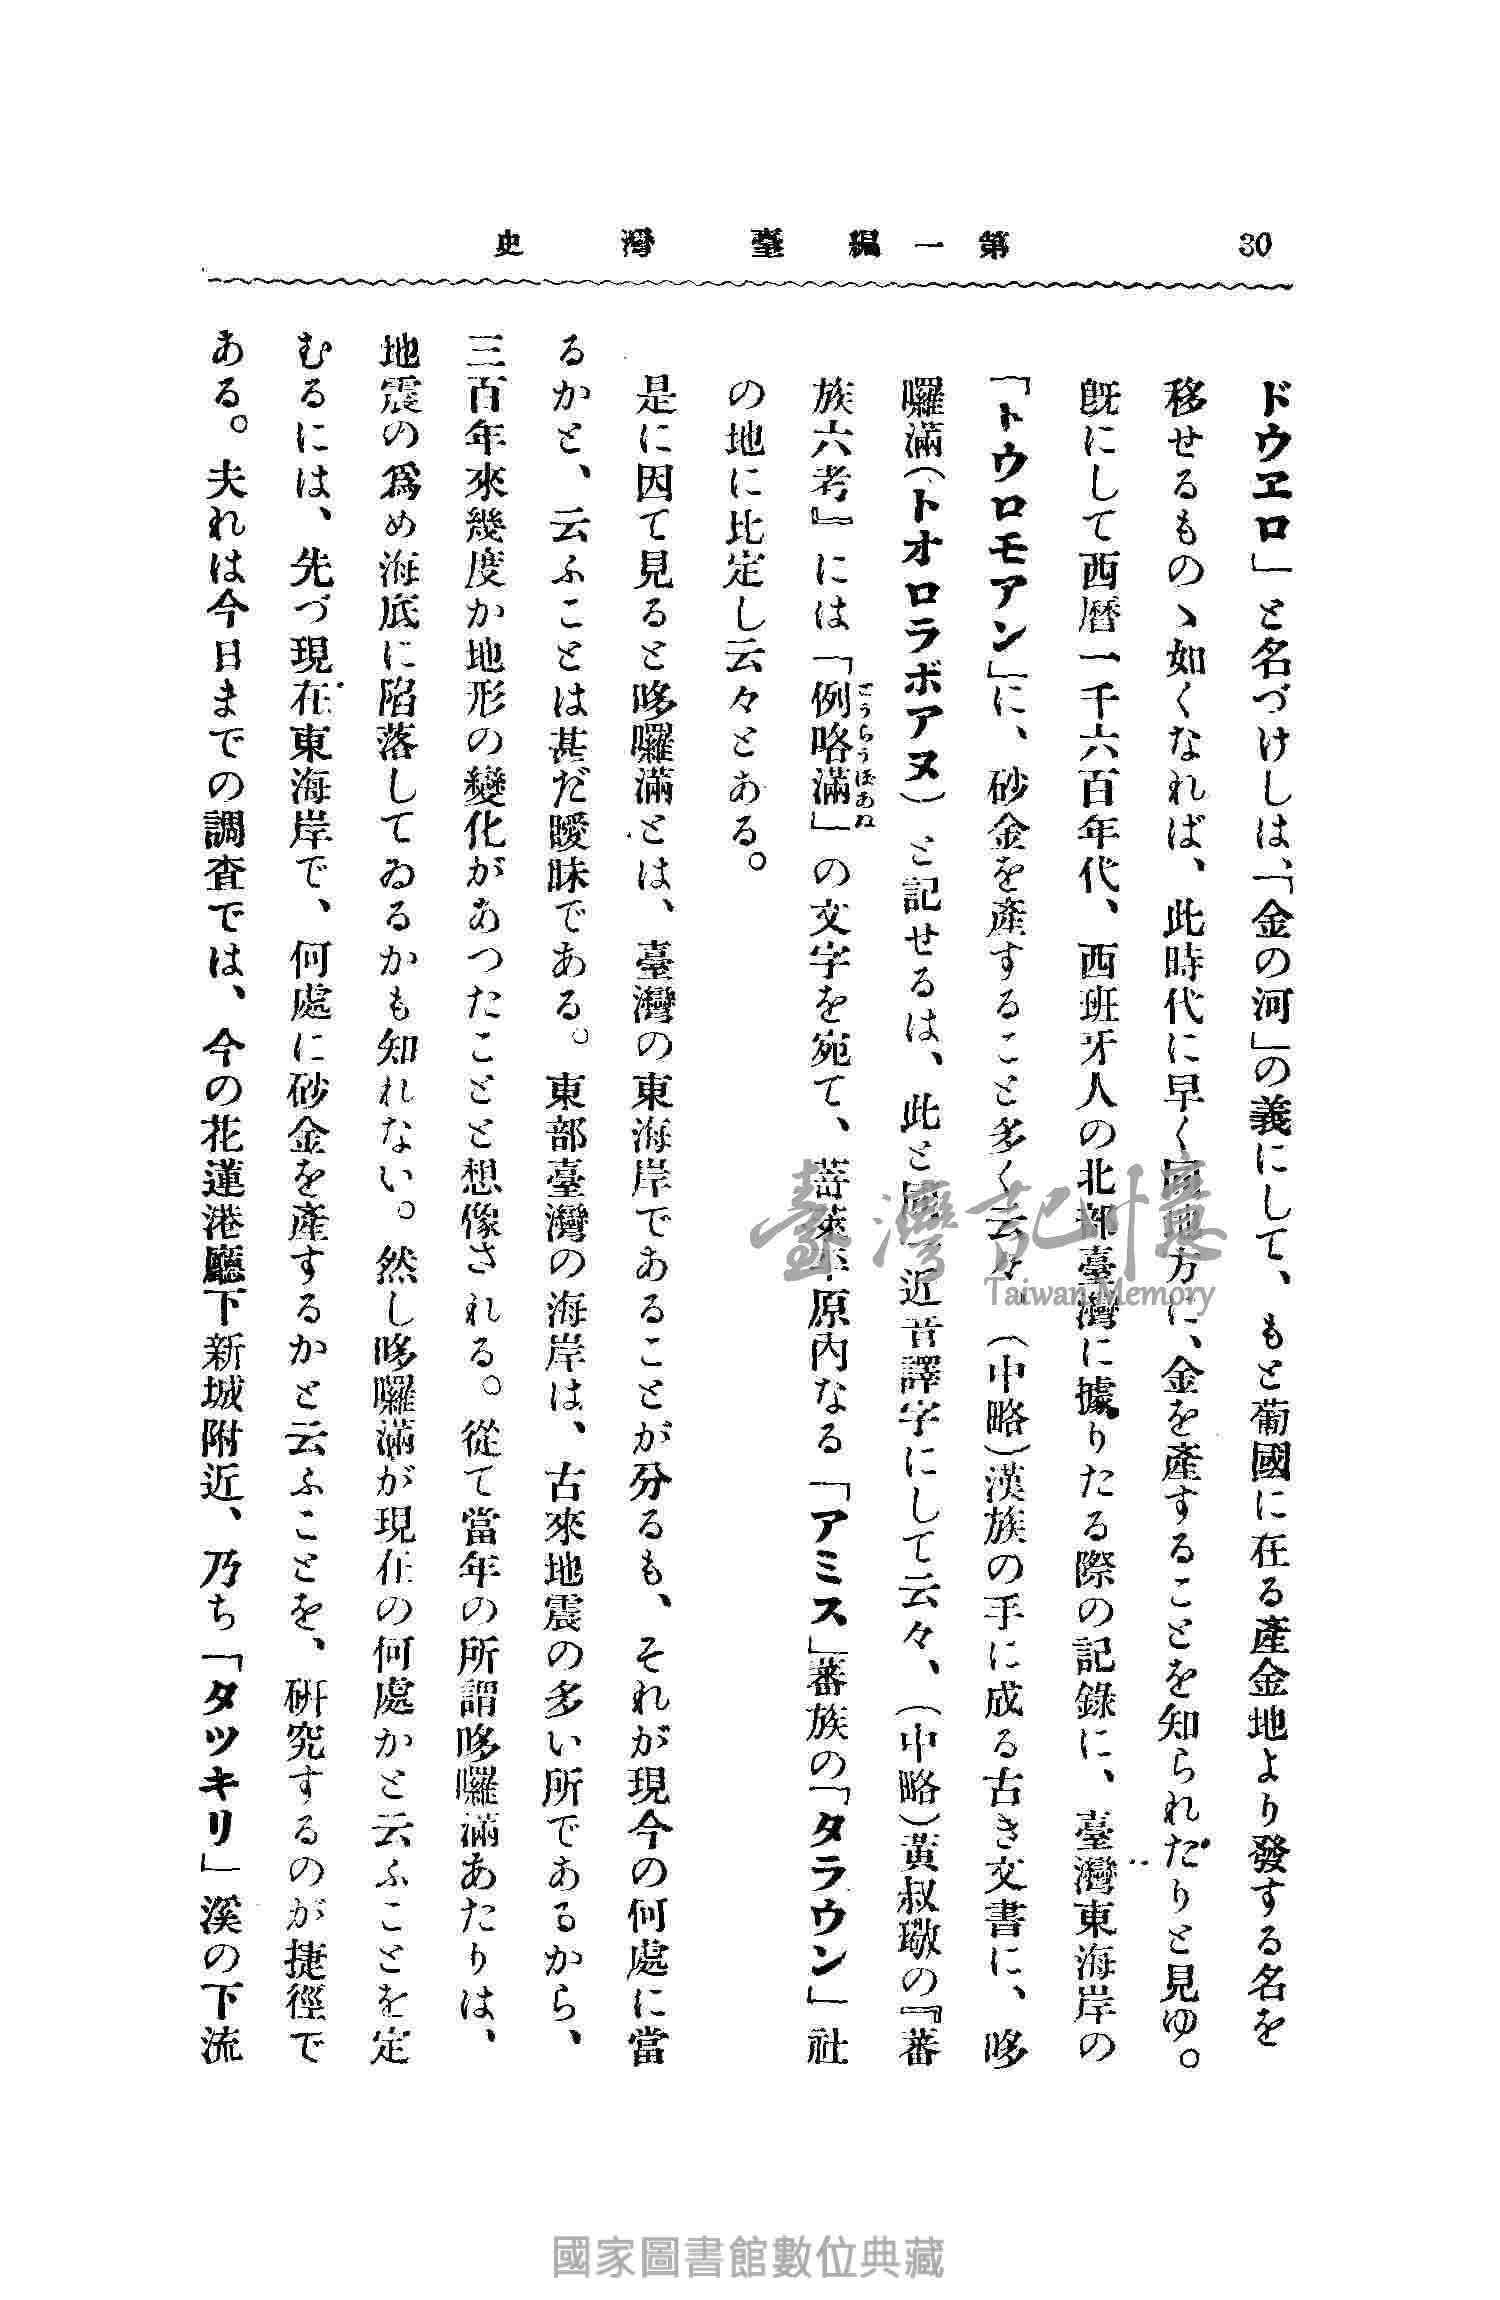 30
第一編臺灣史
ドウヱロ」と名づけしは、「金の河」の義にして、もと葡國に在る產金地より發する名を
移せるものゝ如くなれば、此時代に早く同地方に、金を產することを知られたりと見ゆ。
旣にして西曆一千六百年代、西班牙人の北部臺灣に據りたる際の記錄に、臺灣東海岸の
「トウロモアン」に、砂金を產すること多く云々。(中略)漢族の手に成る古き文書に、哆
囉滿(トオロラボアヌ)と記せるは、此と同一近音譯字にして云々、(中略)黃叔璥の『蕃
族六考』には「例咯滿」の文字を宛て、
ごうらうぼあぬ
萊平原內なる「アミス」蕃族の「タラウン」社
の地に比定し云々とある。
是に因て見ると哆囉滿とは、臺灣の東海岸であることが分るも、それが現今の何處に當
るかと、云ふことは甚だ曖昧である。東部臺灣の海岸は、古來地震の多い所であるから、
三百年來幾度か地形の變化があつたことと想像される。從て當年の所謂哆囉滿あたりは、
地震の爲め海底に陷落してゐるかも知れない。然し哆囉滿が現在の何處かと云ふことを定
むるには、先づ現在東海岸で、何處に砂金を產するかと云ふことを、硏究するのが捷徑で
ある。夫れは今日までの調査では、今の花蓮港廳下新城附近、乃ち「タツキリ」溪の下流
臺灣記憶
Taiwan Memory
國家圖書館數位典藏